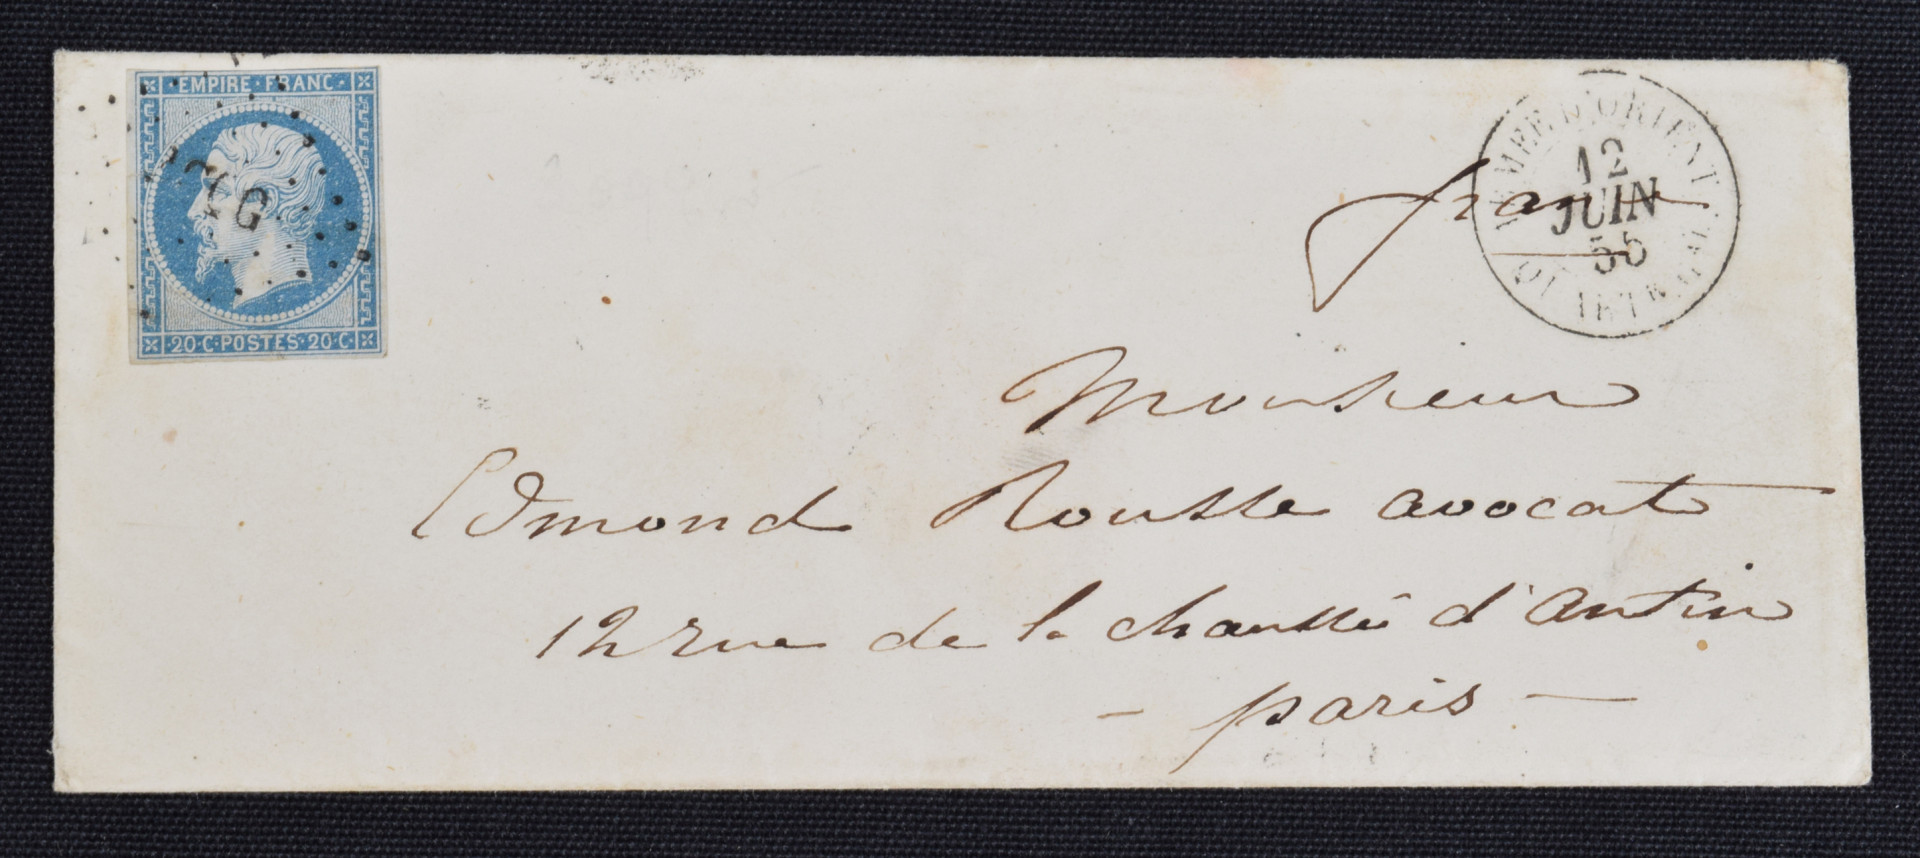 EMPIRE·FRANC·
20·C·POSTES·20·C·
ARMEE D'ORIENT
12
JUIN
55
Qr GENERAL
franc
Monsieur
Edmond Rousse avocat
12 rue de la chaussée d'antin
- paris -